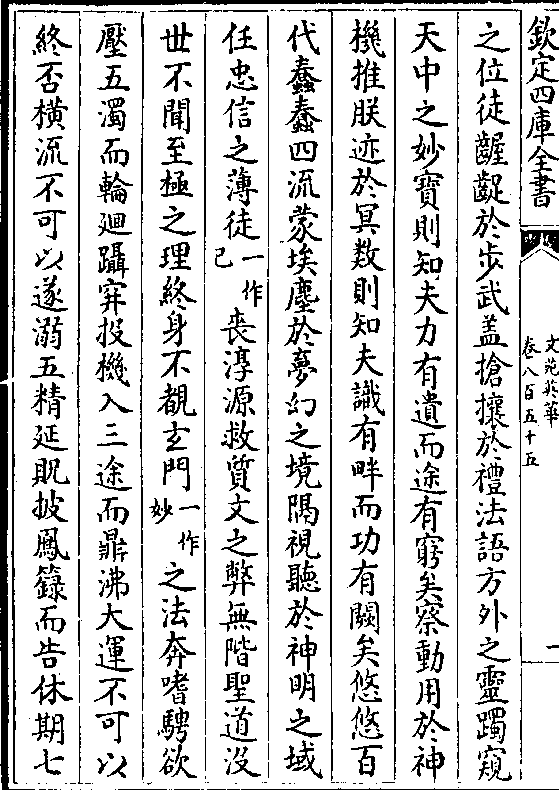 欽定四庫全書
文苑英華
卷八百五十五
一
之位徒齷齪於步武盖搶攘於禮法語方外之靈躅窺
天中之妙寳則知夫力有遺而途有窮矣察動用於神
機推朕迹於冥数則知夫識有畔而功有闕矣悠悠百
代蠢蠢四流蒙埃塵於夢幻之境隔視聽於神明之域
任忠信之薄徒一作已喪淳源救質文之弊無階聖道没
世不聞至極之理終身不覩玄門一作妙之法奔嗜騁欲
壓五濁而輪迴躡穽投機入三途而鼎沸大運不可以
終否横流不可以遂溺五精延貺披鳳籙而告休期七